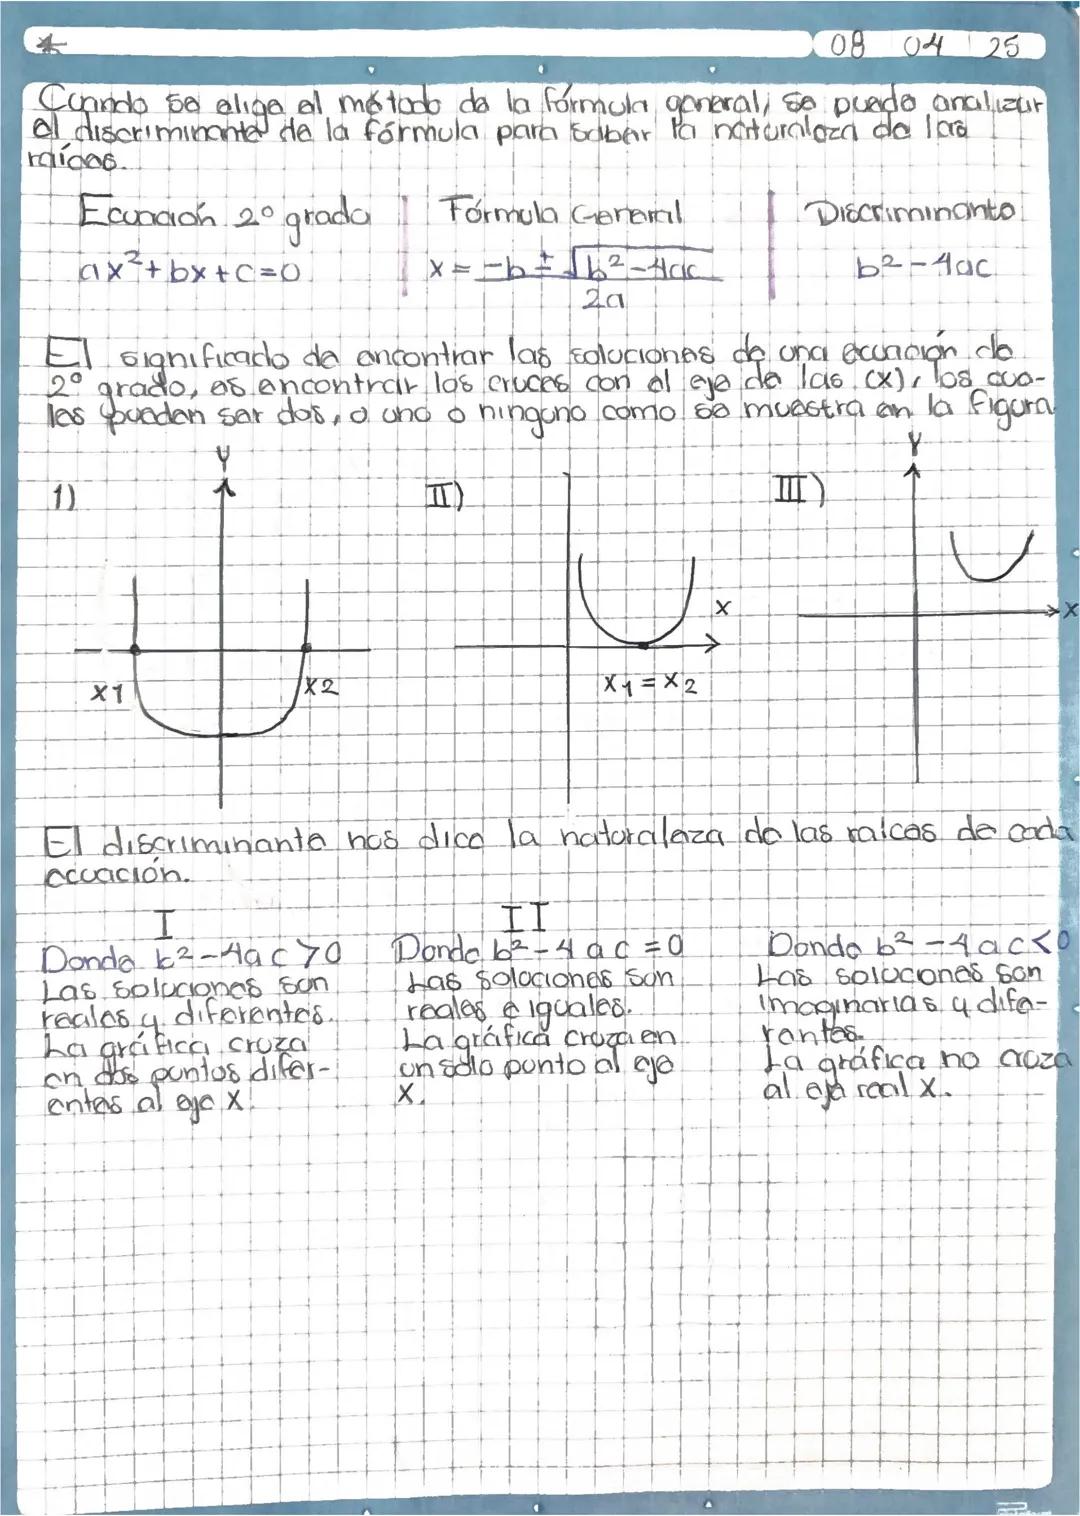 08 04 25
Cuando se elige el método de la fórmula general, se puede analizar
el discriminante de la fórmula para saber la naturaleza de las
raíces.
Ecuación 2º grado | Fórmula General | Discriminante
ax²+bx+c=0 x = -b ± √b²-4ac b²-4ac
2a
El significado de encontrar las soluciones de una ecuación de
2º grado, es encontrar los cruces con el eje de las (x), los cua-
les pueden ser dos, o uno o ninguno como se muestra en la figura
y y
1) II) III)
x x
x1 x2 x1 = x2
El discriminante nos dice la naturaleza de las raíces de cada
ecuación.
I II
Donde b²-4ac>0 Donde b²-4ac=0 Donde b²-4ac<0
Las soluciones son Las soluciones son Las soluciones son
reales y diferentes. reales e iguales. imaginarias y dife-
La gráfica cruza La gráfica cruza en rentes.
en dos puntos difer- un solo punto al eje La gráfica no cruza
entes al eje x. x. al eje real x.